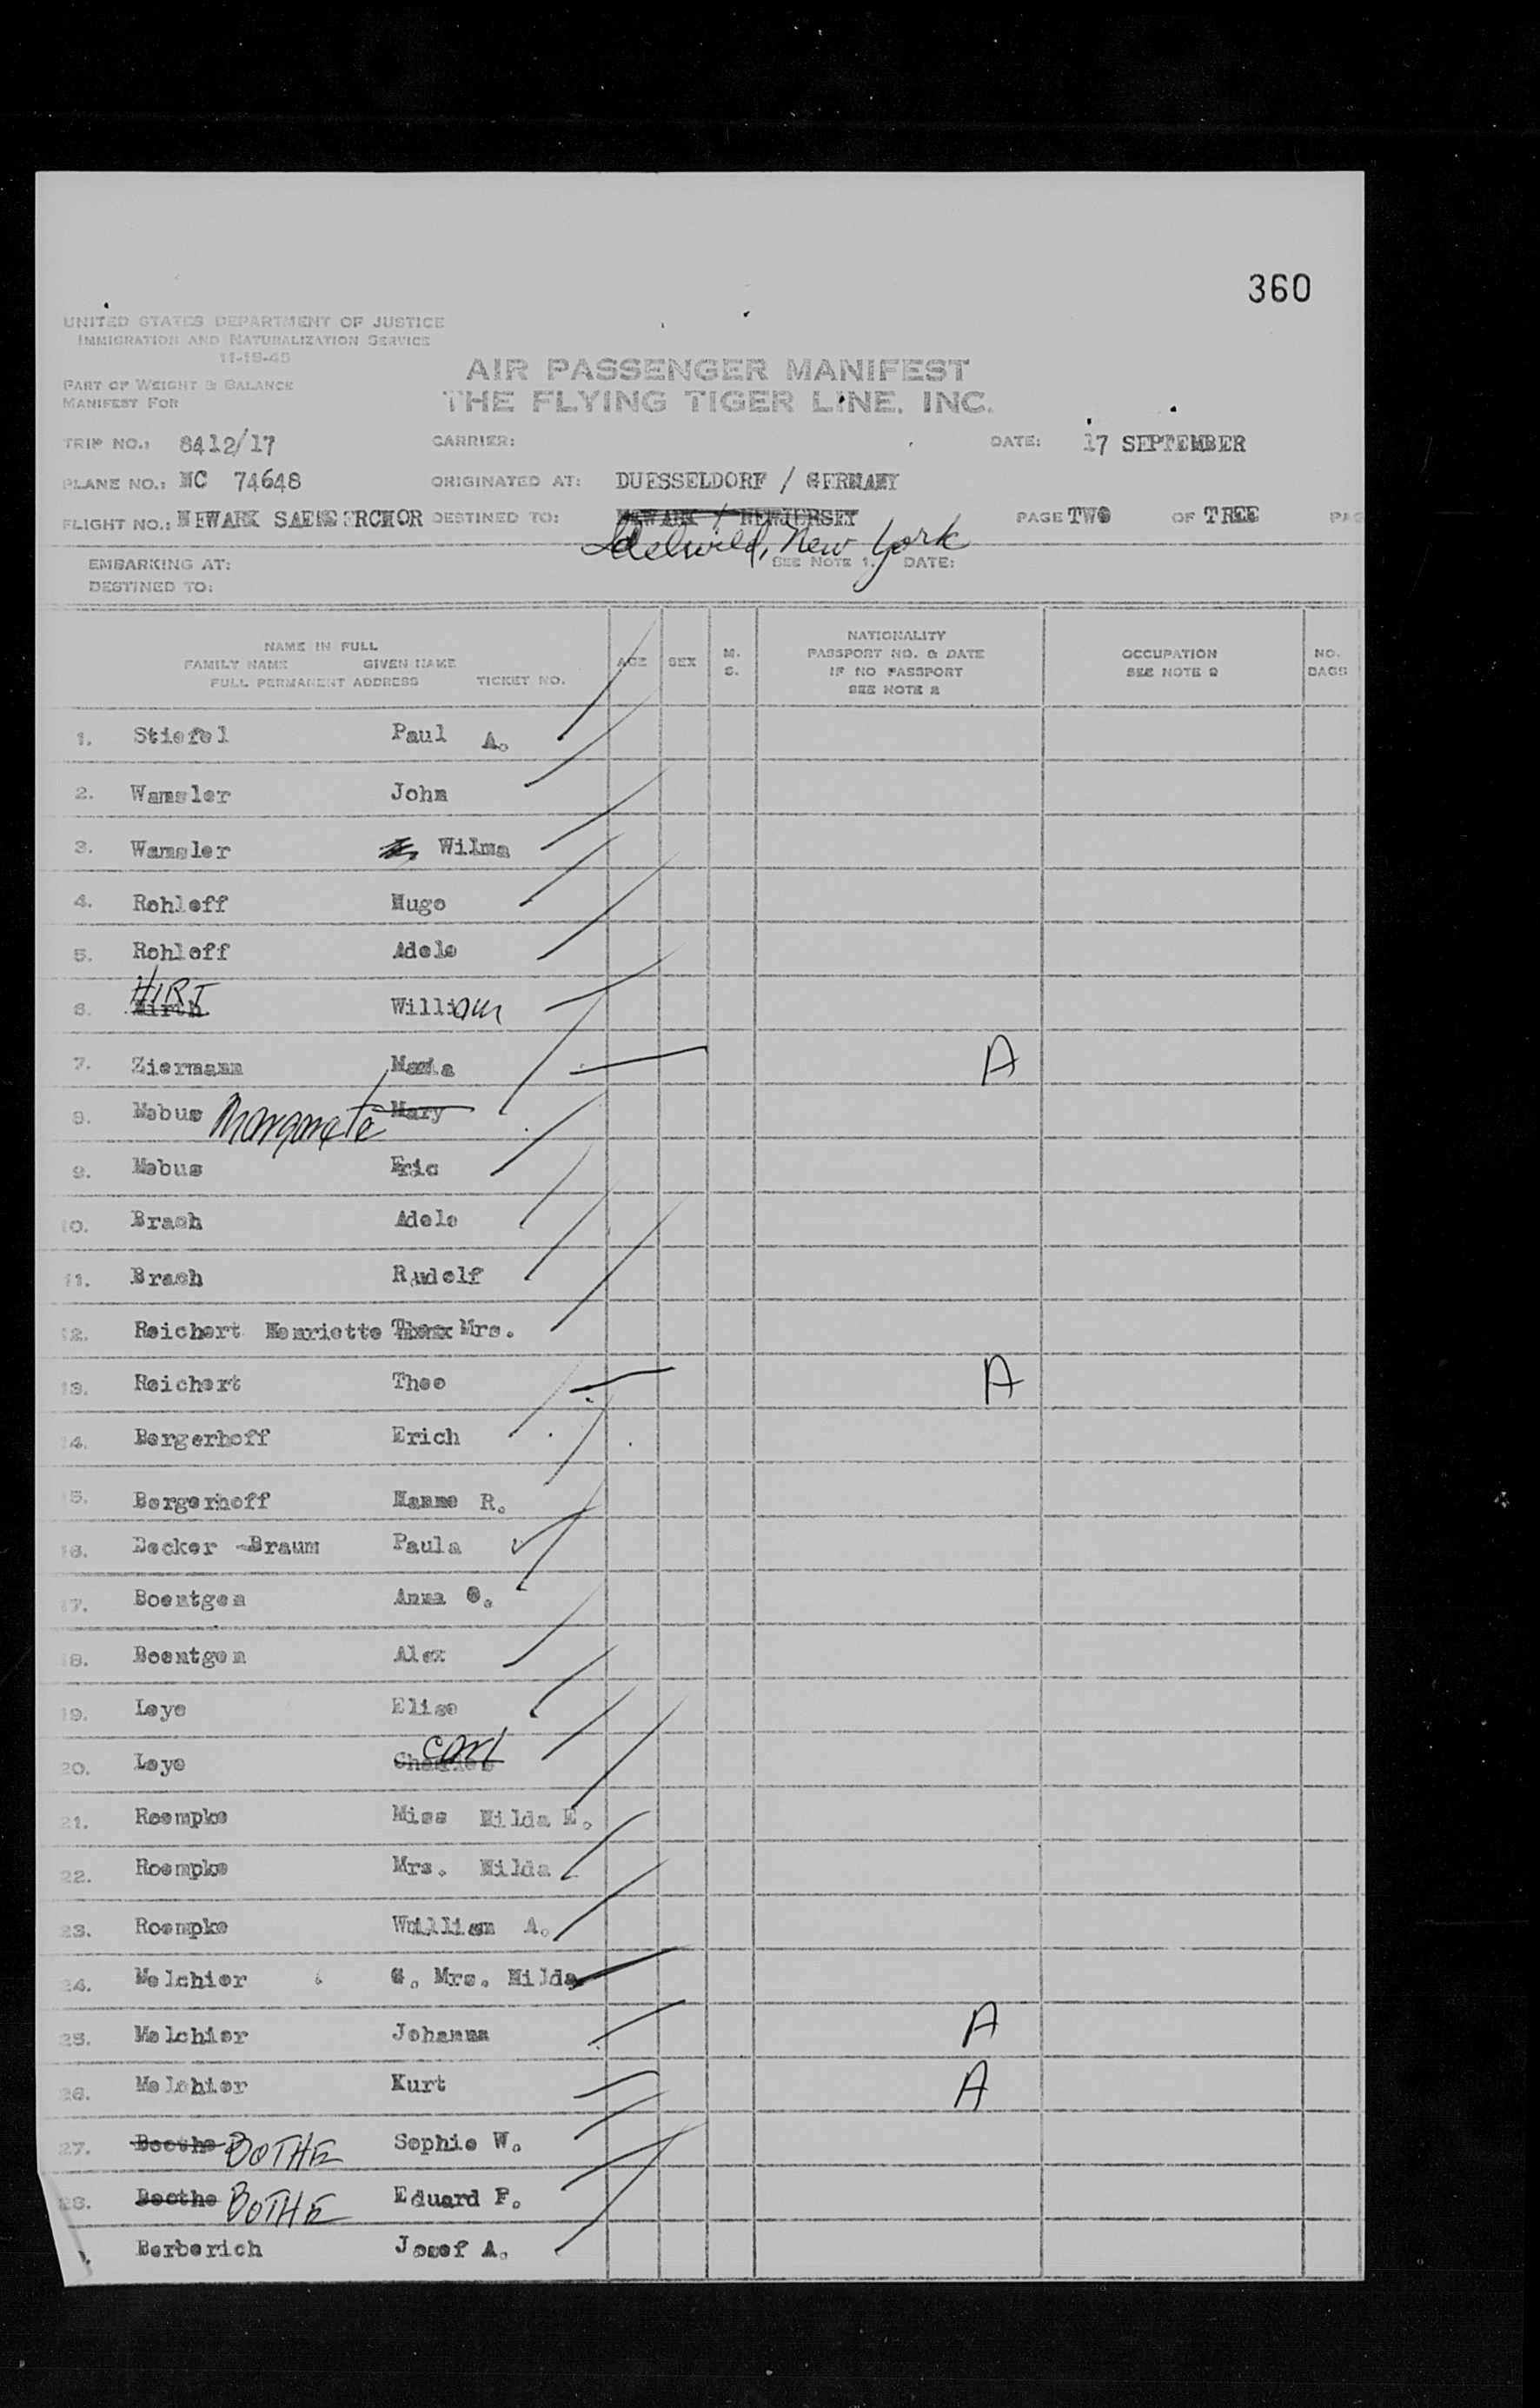 360
UNITED STATES DEPARTMENT OF JUSTICE
IMMIGRATION AND NATURALIZATION SERVICE
11-18-45
AIR PASSENGER MANIFEST
PART OF WEIGHT & BALANCE
MANIFEST FOR
THE FLYING TIGER LINE, INC.
TRIP NO.: 8412/17 CARRIER: DATE: 17 SEPTEMBER
PLANE NO.: NC 74648 ORIGINATED AT: DUESSELDORF / GERMANY
FLIGHT NO.: NEWARK SAENGERCHOR DESTINED TO: NEWARK / NEWJERSEY PAGE TWO OF TREE PAG
Idelwild, New York
EMBARKING AT: SEE NOTE 1. DATE:
DESTINED TO:
NAME IN FULL
FAMILY NAME GIVEN NAME
FULL PERMANENT ADDRESS TICKET NO.
AGE SEX M. S.
NATIONALITY
PASSPORT NO. & DATE
IF NO PASSPORT
SEE NOTE 2
OCCUPATION
SEE NOTE 2
NO.
BAGS
1. Stiefel Paul A.
2. Wamsler John
3. Wamsler Wilma
4. Rohloff Hugo
5. Rohloff Adele
HIRT
6. Hirth William
7. Ziermann Maria A
8. Mebus Margarete Mary
9. Mebus Eric
10. Brash Adele
11. Brash Rudolf
12. Reichert Henriette Mrs.
13. Reichert Theo A
14. Bergerhoff Erich
15. Bergerhoff Hanne R.
16. Becker -Braum Paula
17. Boentgen Anna G.
18. Boentgen Alex
19. Leye Elise
Carl
20. Leye Charles
21. Roempke Miss Hilda E.
22. Roempke Mrs. Hilda
23. Roempke William A.
24. Melchior G. Mrs. Hilda
25. Melchior Johanna A
26. Melchior Kurt A
27. Boothe BOTHE Sophie W.
28. Boothe BOTHE Eduard F.
Berberich Josef A.